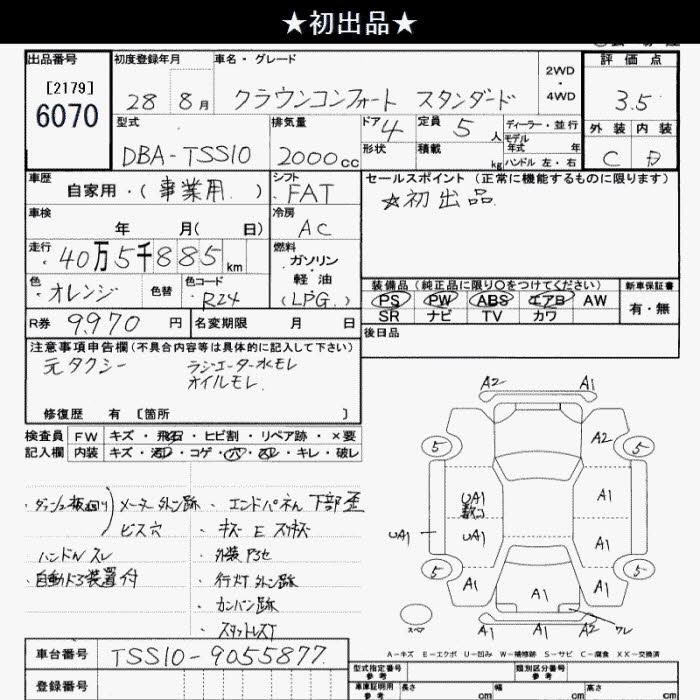 ★初出品★
出品番号 初度登録年月 車名・グレード 2WD・4WD 評価点
[2179]
6070
28 8月 クラウンコンフォート スタンダード 3.5
型式 排気量 ドア 4 定員 5人 ディーラー・並行 外装 内装
DBA-TSS10 2000cc 形状 積載 kg モデル年式 年式 ハンドル 左・右 C D
車歴 自家用・(事業用) シフト FAT セールスポイント (正常に機能するものに限ります)
☆初出品
車検 年 月( 日) 冷房 AC
走行 40万5千885km 燃料 ガソリン・軽油 (LPG)
色 オレンジ 色替 色コード R24
装備品(純正品に限り○をつけてください) 新車保証書
PS PW ABS エアB AW 有・無
SR ナビ TV カワ
R券 9,970円 名変期限 月 日 後日品
注意事項申告欄(不具合内容等は具体的に記入して下さい)
元タクシー ラジエーター水モレ
オイルモレ
修復歴 有 〔箇所 〕
検査員 FW キズ・飛石・ヒビ割・リペア跡・×要
記入欄 内装 キズ・コゲ・穴・キレ・破レ
・ダッシュ板廻り メーター外シ跡 ・エンドパネル下部歪
ビス穴 ・キズ E スリキズ
ハンドルスレ ・外装
・自動ドア装置付 ・行灯外シ跡
・カンバン跡
車台番号 TSS10-9055877
登録番号
A2 A1
5 A2 5
UA1 A1
UA1 UA1 A1
5 A1 A1 A1 5
スペア A1 A1 A2 ワレ
A-キズ E-エクボ U-凹み W-補修跡 S-サビ C-腐食 XX-交換済
型式指定番号 類別区分番号
車庫証明用参考 長さ cm 幅 cm 高さ cm